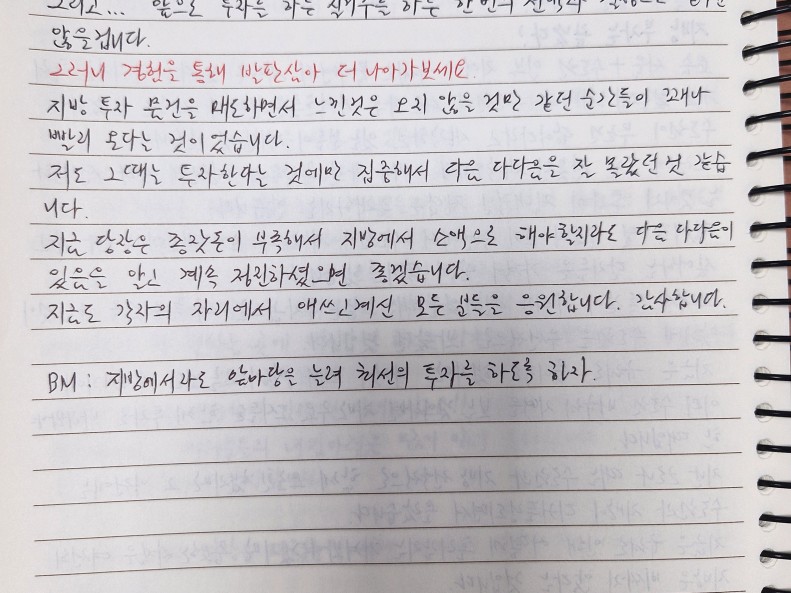 않을겁니다.
그러니 경험을 통해 발판삼아 더 나아가보세요.
지방 투자 물건을 매도하면서 느낀것은 오지 않을 것만 같던 순간들이 꽤나
빨리 온다는 것이었습니다.
저도 그때는 투자한다는 것에만 집중해서 다음 다다음을 잘 몰랐던 것 같습
니다.
지금 당장은 종잣돈이 부족해서 지방에서 소액으로 해야할지라도 다음 다다음이
있음을 알고 계속 정진하셨으면 좋겠습니다.
지금도 각자의 자리에서 애쓰고계신 모든 분들을 응원합니다. 감사합니다.
BM : 지방에서라도 앞마당은 늘려 최선의 투자를 하도록 하자.